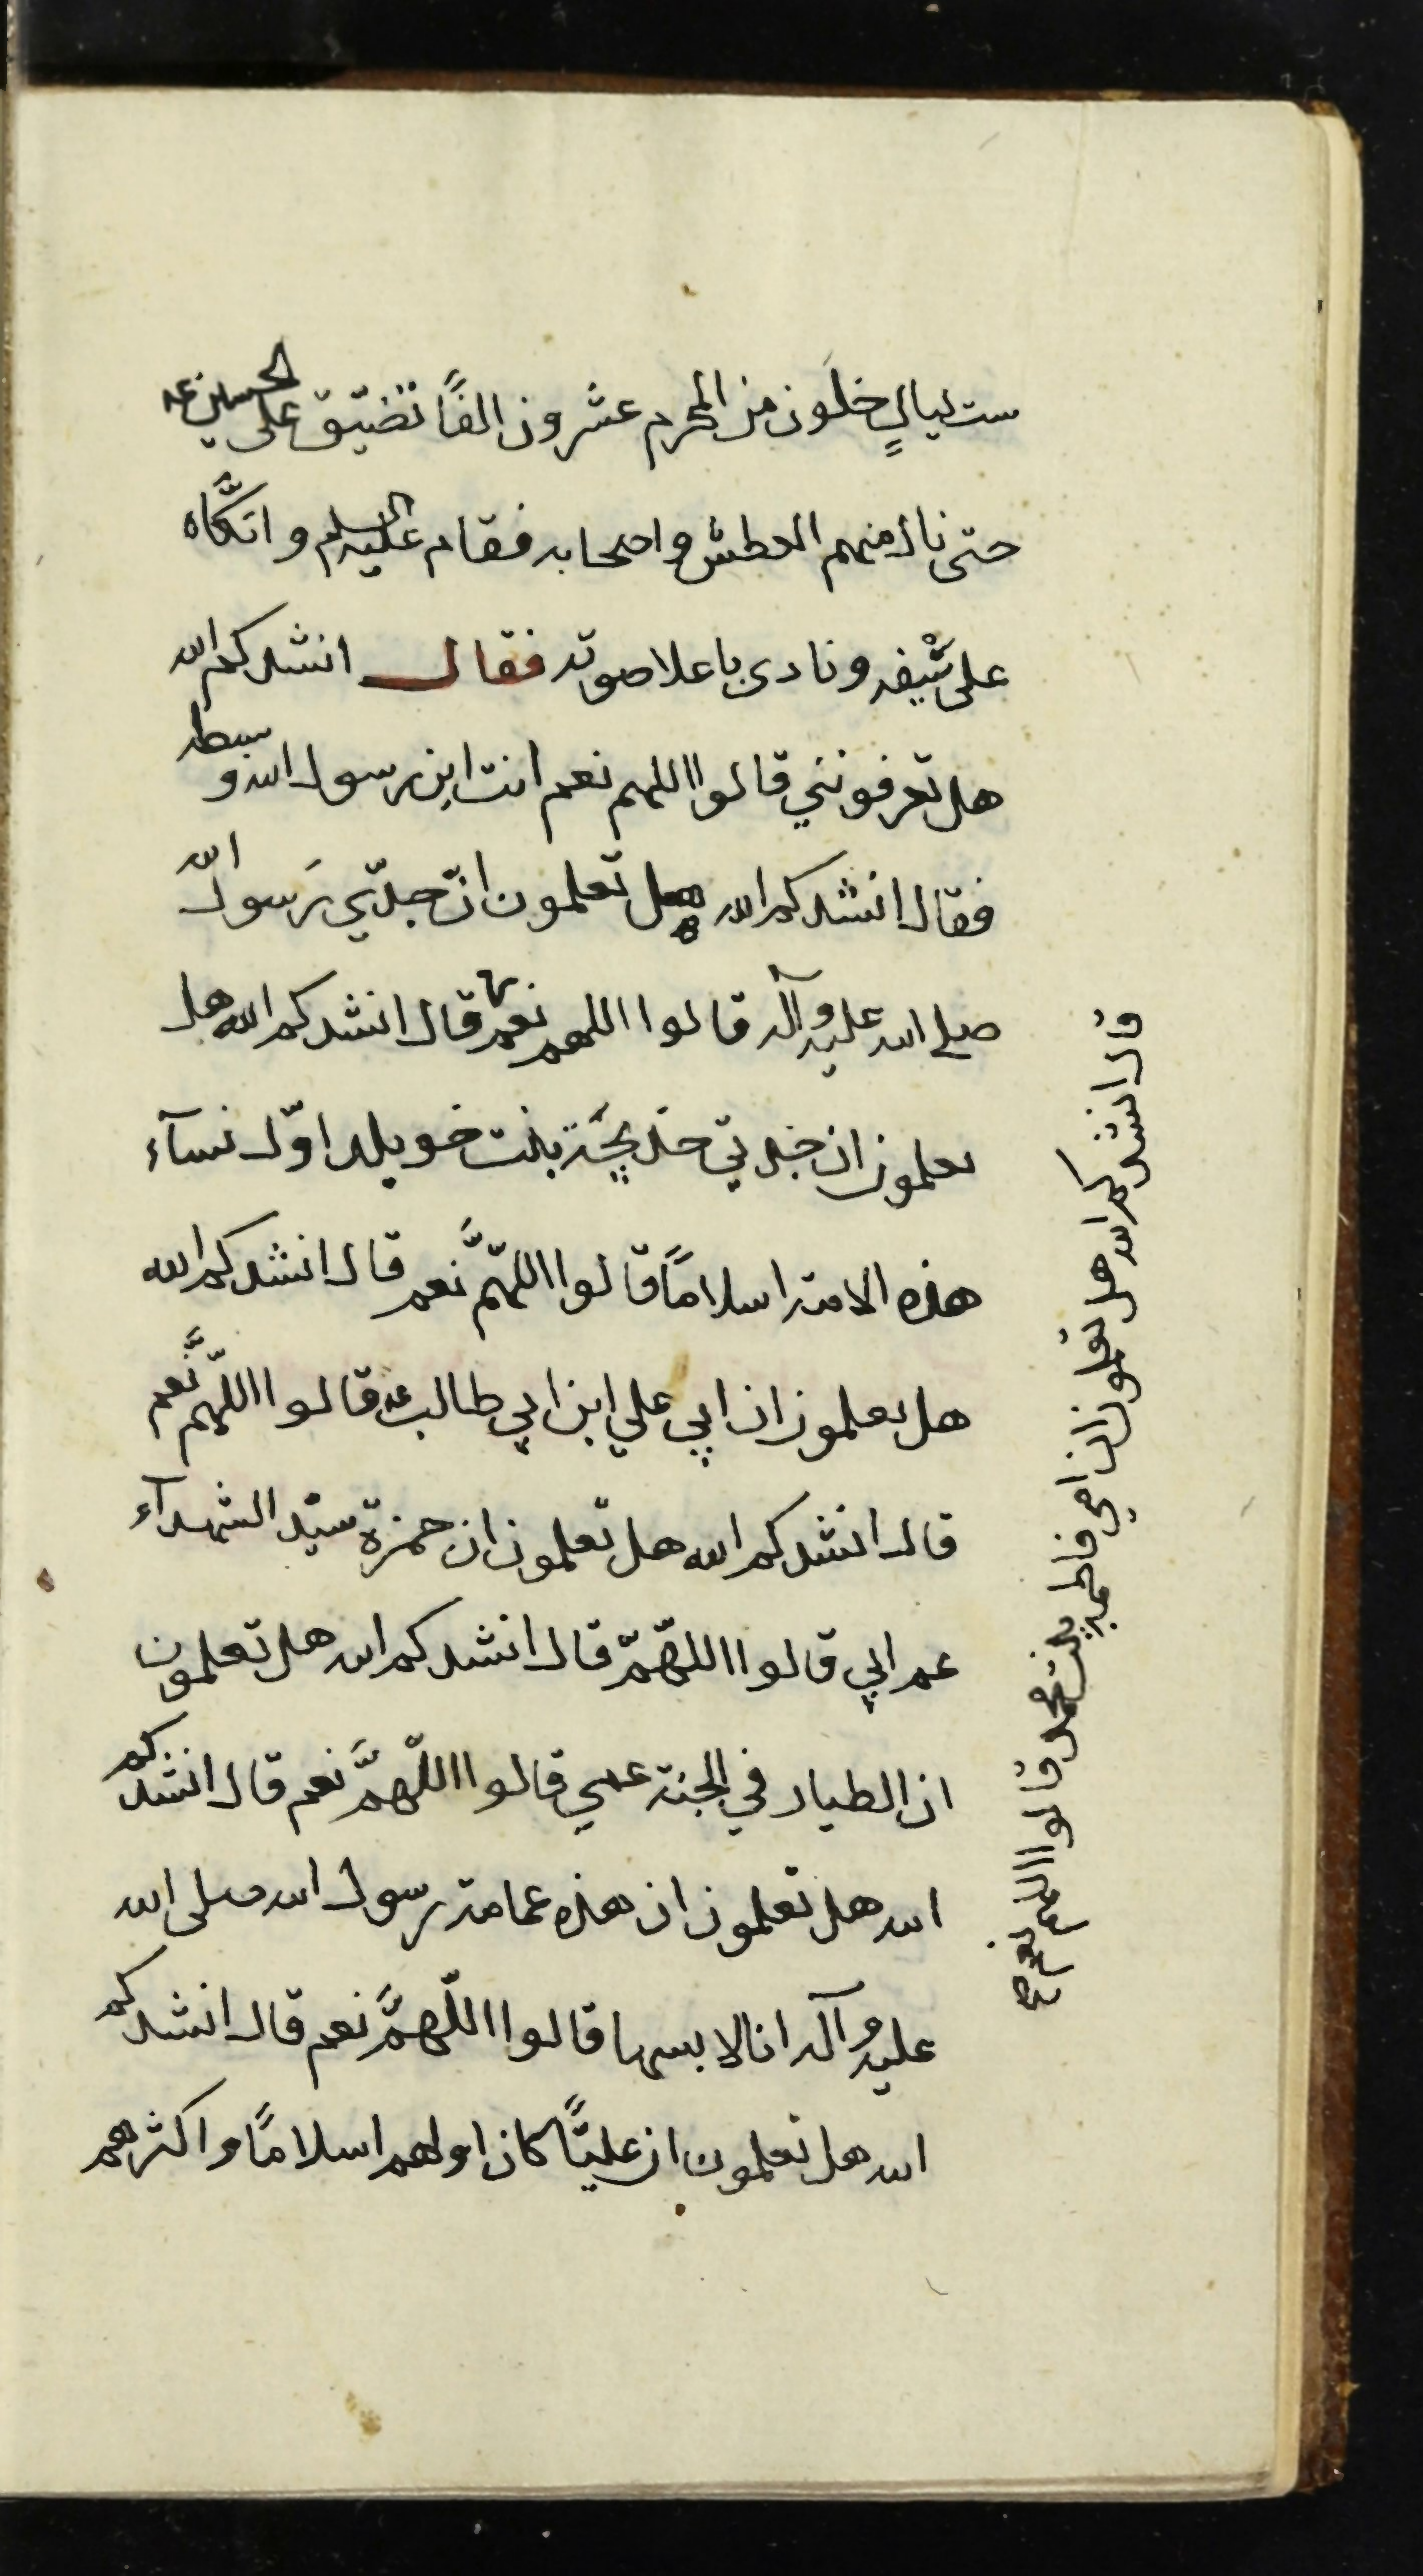 ست ليالٍ خلَون من المحرم عشرون الفًا تضيّق على الحسين عه
حتى نال منهم العطش واصحابه فقام عليه السلم واتّكاه
على سَيفه ونادى باعلا صوته فقال انشدكم الله
هل تعرفونني قالوا اللهم نعم انت ابن رسول الله وسبطه
فقال انشدكم الله هل تعلمون انّ جدّي رَسول الله
صلى الله عليه وآله قالوا اللهم نعم قال انشدكم الله هل
تعلمون ان جدتي خديجَة بنت خويلد اوّل نسآء
هذه الامة اسلامًا قالوا اللّهمَّ نعم قال انشدكم الله
هل تعلمون ان ابي علي ابن ابي طالب عه قالوا اللّهمَّ نعم
قال انشدكم الله هل تعلمون ان حمزة سيّد الشهدآء
عم ابي قالوا اللّهمّ قال انشدكم الله هل تعلمون
ان الطيار في الجنة عمي قالوا اللّهمَّ نعم قال انشدكم
الله هل تعلمون ان هذه عمامة رسول الله صلى الله
عليه وآله انا لابسها قالوا اللّهمَّ نعم قال انشدكم
الله هل تعلمون ان عليًّا كان اولهم اسلامًا واكثرهم
قال انشدكم الله هل تعلمون ان امي فاطمه بنت محمد قالوا اللهم نعم صح